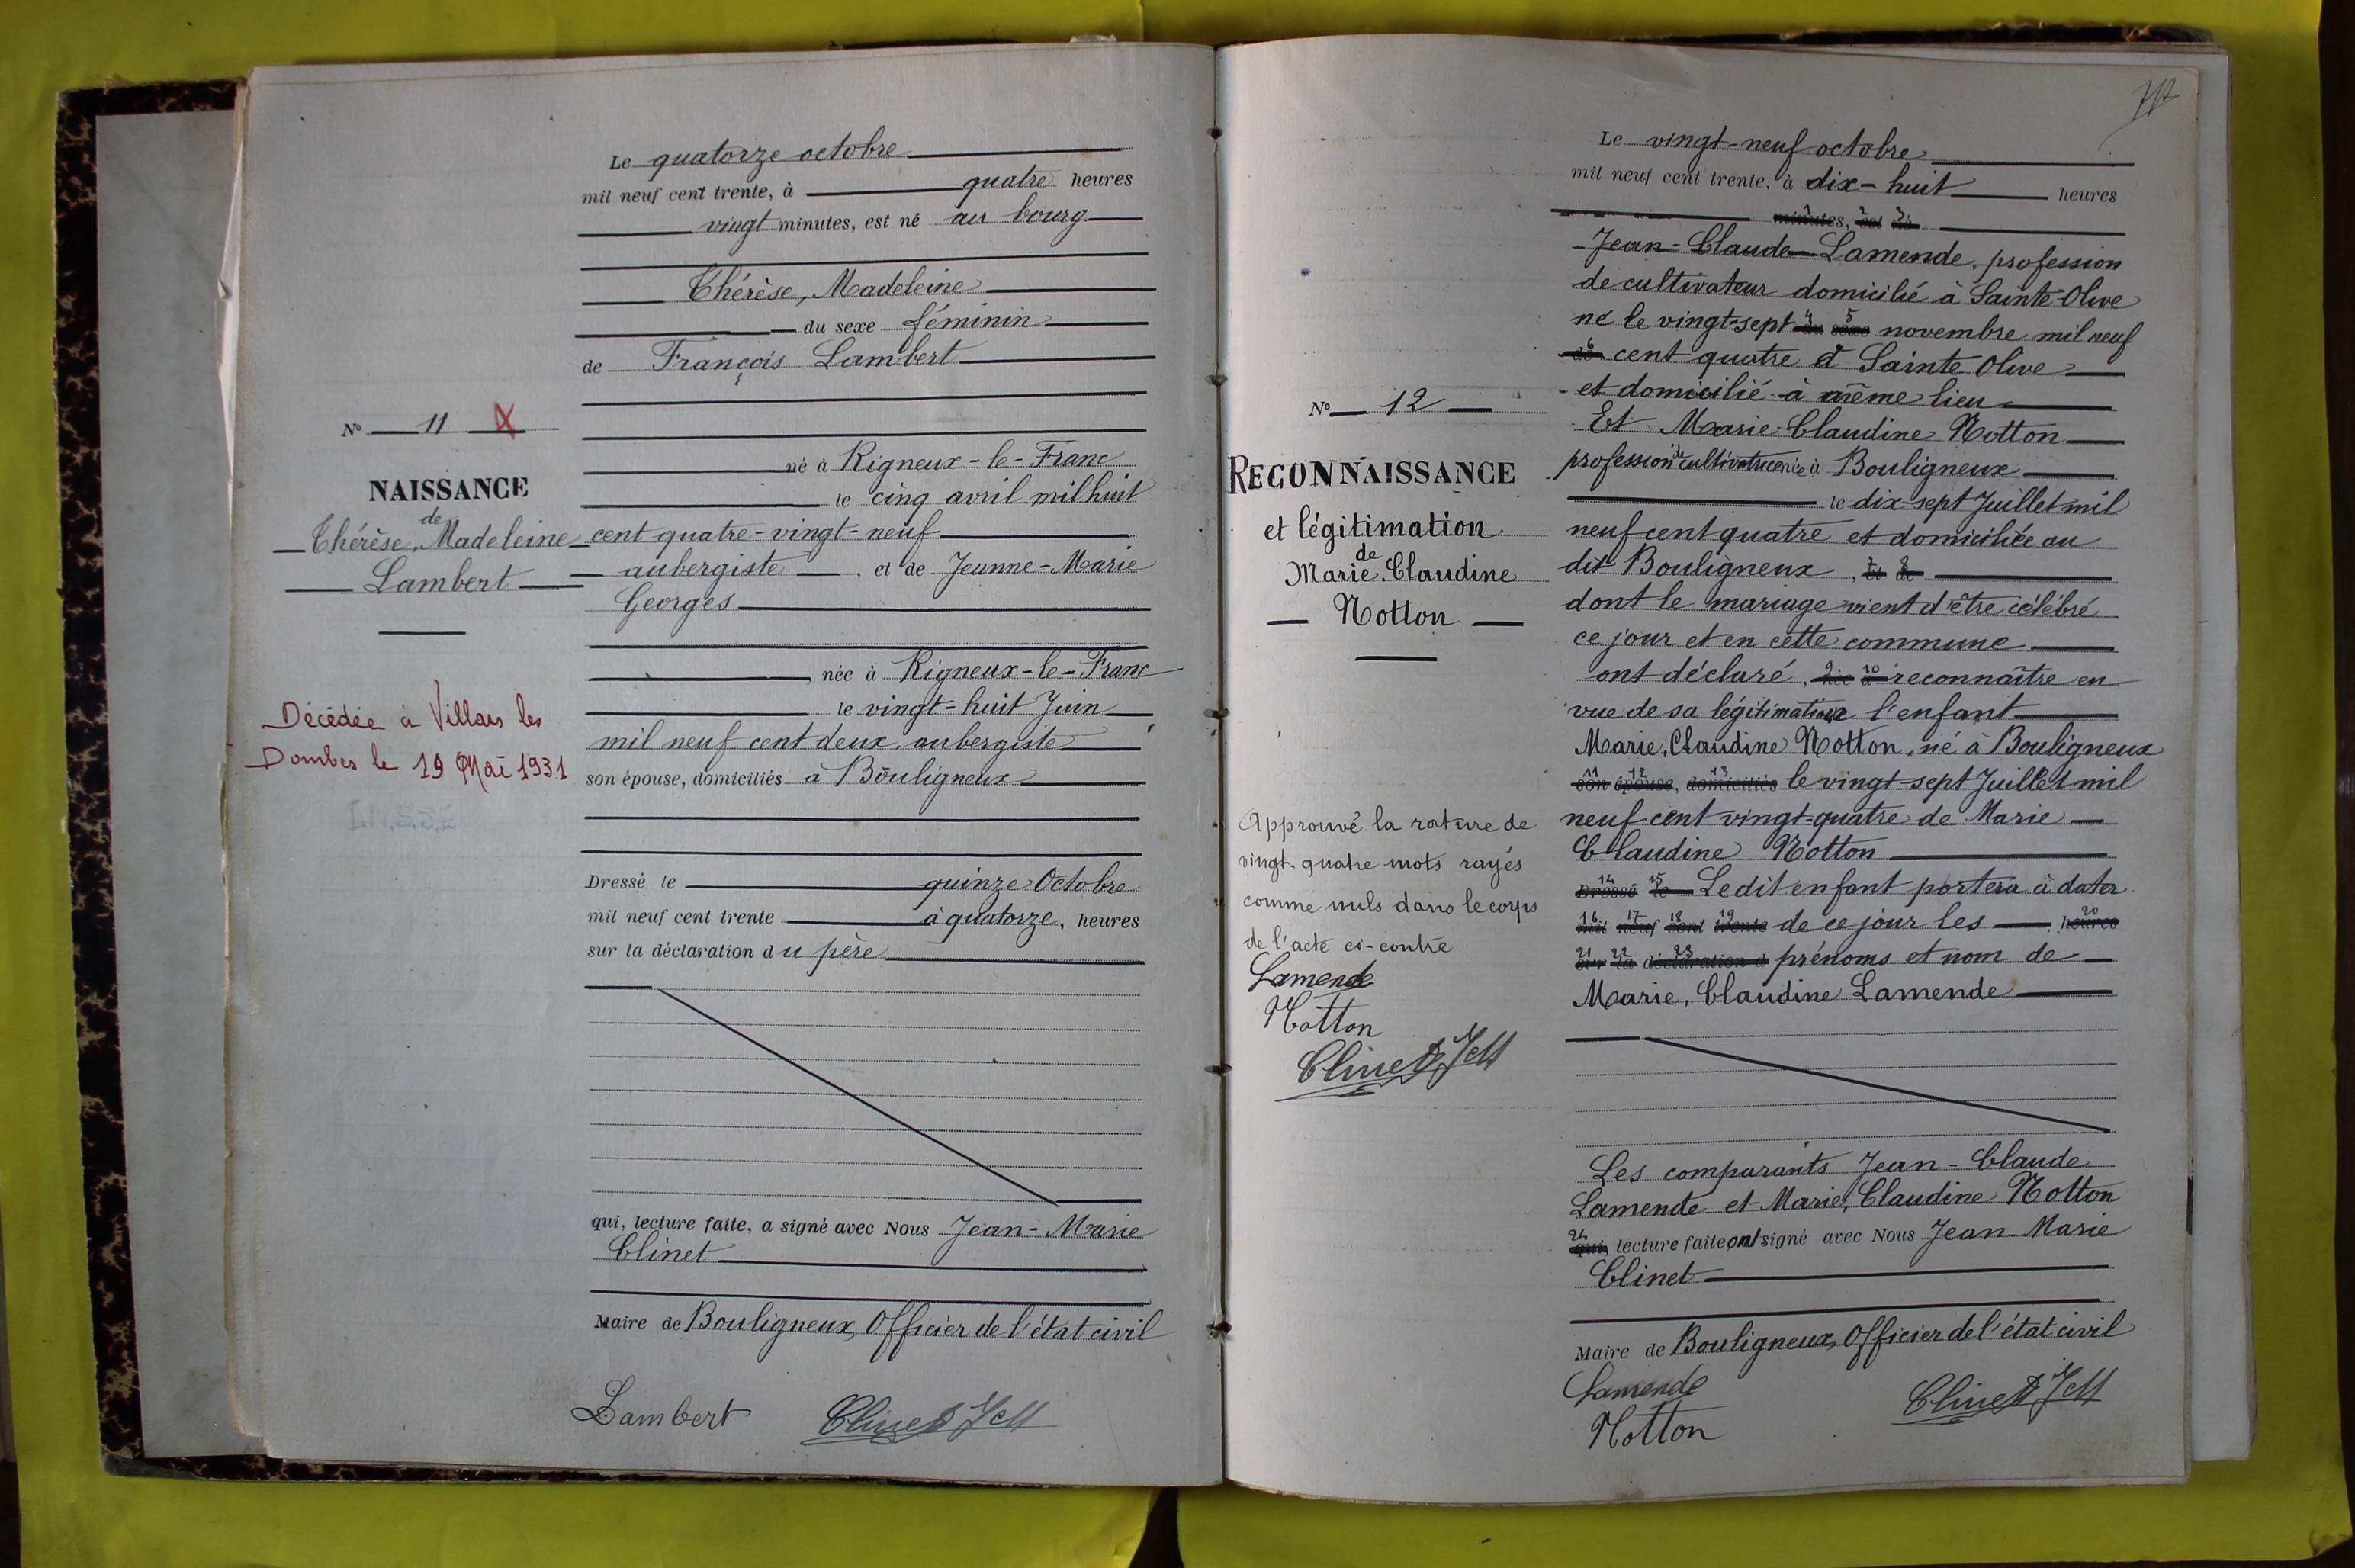 Le quatorze octobre
mil neuf cent trente, à quatre heures
vingt minutes, est né au bourg
Thérèse, Madeleine
du sexe féminin
de François Lambert
N° 11
né à Rigneux-le-Franc
NAISSANCE
le cinq avril mil huit
de
Thérèse, Madeleine
cent quatre-vingt-neuf
Lambert
aubergiste, et de Jeanne-Marie
Georges
née à Rigneux-le-Franc
le vingt-huit Juin
Décédée à Villars les
Dombes le 19 Mai 1931
mil neuf cent deux, aubergiste
son épouse, domiciliés à Bouligneux
Dressé le quinze Octobre
mil neuf cent trente à quatorze, heures
sur la déclaration du père
qui, lecture faite, a signé avec Nous Jean-Marie
Clinet
Maire de Bouligneux, Officier de l'état civil
Lambert Clinet JM
Le vingt-neuf octobre
mil neuf cent trente, à dix-huit heures
1 2 3
minutes, est né
Jean-Claude Lamende, profession
de cultivateur domicilié à Sainte-Olive
né le vingt-sept 4 du 5 sexe novembre mil neuf
6 de cent quatre à Sainte Olive
et domicilié à même lieu
N° 12
Et Marie Claudine Notton
RECONNAISSANCE
et légitimation
de
Marie, Claudine
Notton
profession de cultivatrice née à Bouligneux
le dix-sept Juillet mil
neuf cent quatre et domiciliée au
dit Bouligneux, 7 et 8 de
dont le mariage vient d'être célébré
ce jour et en cette commune
ont déclaré, 9 née 10 à reconnaître en
vue de sa légitimation l'enfant
Marie, Claudine Notton, né à Bouligneux
11 son 12 épouse, 13 domiciliés le vingt-sept Juillet mil
neuf cent vingt-quatre de Marie
Claudine Notton
14 Dressé 15 le Ledit enfant portera à dater
16 mil 17 neuf 18 cent 19 trente de ce jour les 20 heures
21 sur 22 la 23 déclaration d prénoms et nom de
Marie, Claudine Lamende
Approuvé la rature de
vingt-quatre mots rayés
comme nuls dans le corps
de l'acte ci-contre
Lamende
Notton
Clinet JM
Les comparants Jean-Claude
Lamende et Marie, Claudine Notton
24 qui, lecture faite ont signé avec Nous Jean-Marie
Clinet
Maire de Bouligneux, Officier de l'état civil
Lamende Clinet JM
Notton